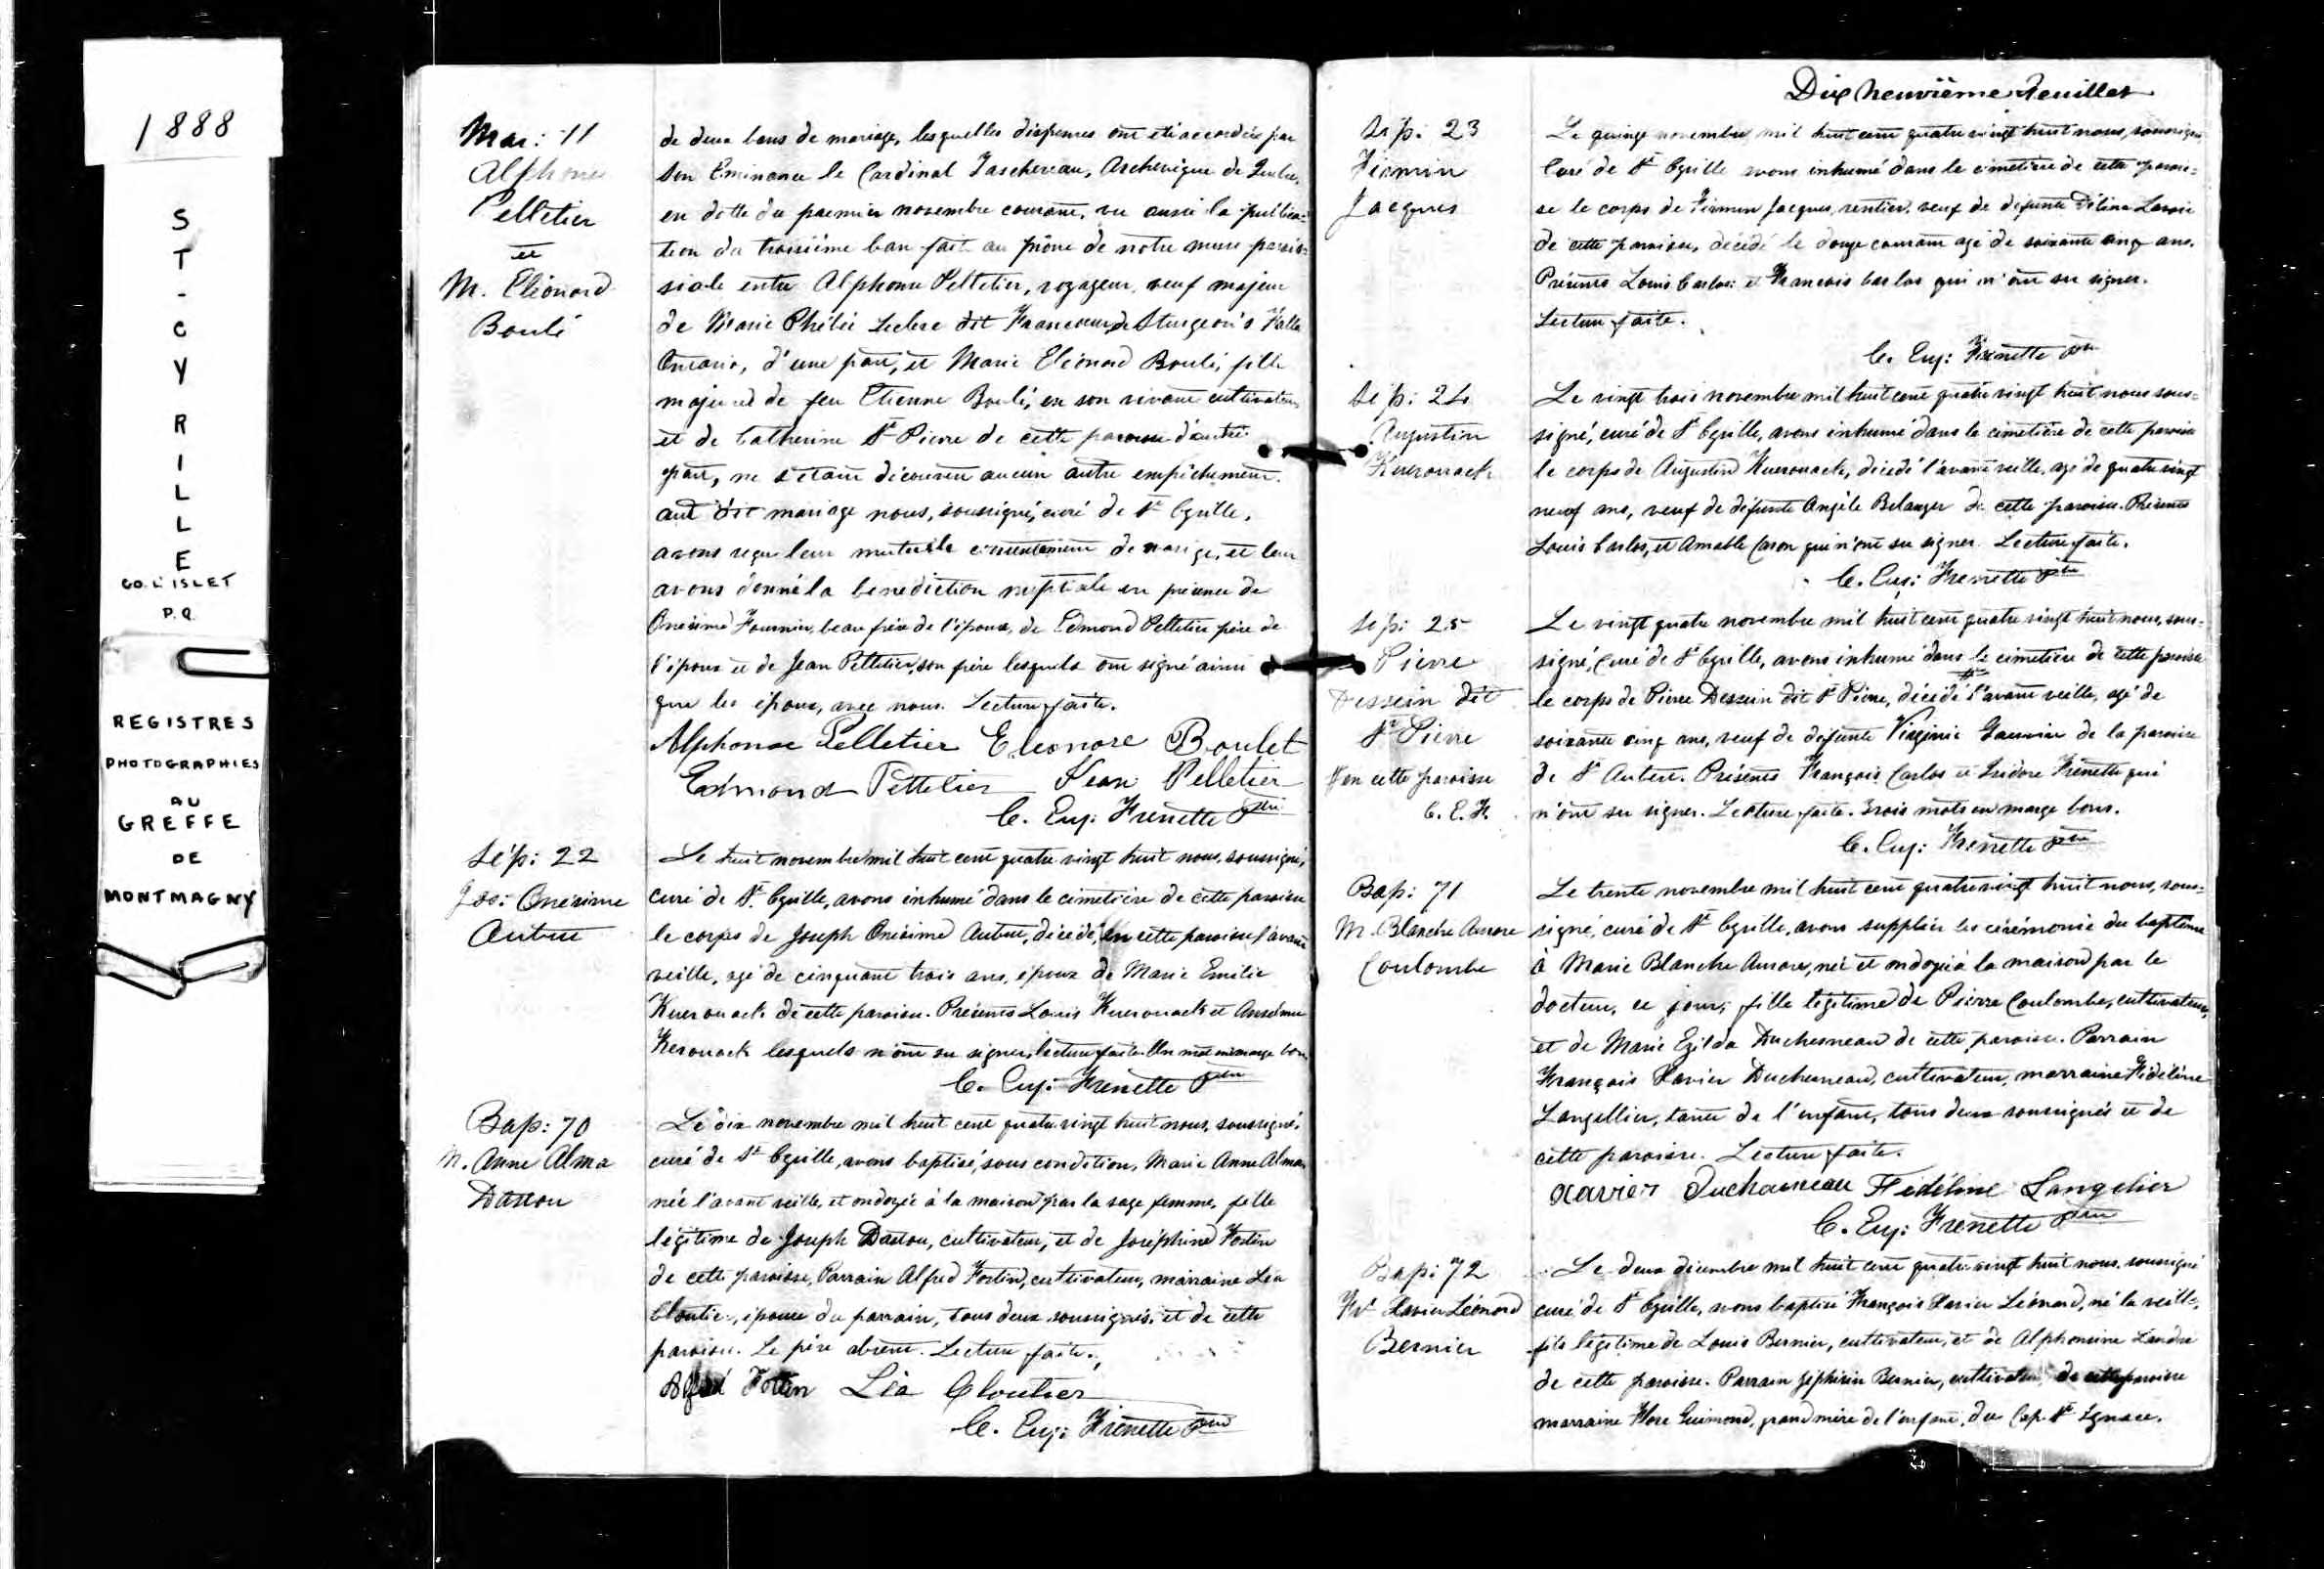 1888
S
T
-
C
Y
R
I
L
L
E
CO. L'ISLET
P.Q.
REGISTRES
PHOTOGRAPHIES
AU
GREFFE
DE
MONTMAGNY
Mar: 11
Alphonse
Pelletier
et
M. Eléonord
Boulé
de deux bans de mariage, lesquelles dispenses ont été accordées par
Son Eminence le Cardinal Taschereau, Archevêque de Québec,
en datte du premier novembre courant, vu aussi la publica=
tion du troisième ban fait au prône de notre messe parois=
siale entre Alphonse Pelletier, voyageur, veuf majeur
de Marie Phélée Leclerc dit Francoeur, de Sturgeon's Falls
Ontario, d'une part, et Marie Eléonord Boulé, fille
majeure de feu Etienne Boulé, en son vivant cultivateur
et de Catherine St Pierre de cette paroisse d'autre
part, ne s'étant découvert aucun autre empêchement
au dit mariage nous, soussigné, curé de St Cyrille,
avons reçu leur mutuelle consentement de mariage, et leur
avons donné la bénédiction nuptiale en présence de
Onésime Fournier, beau frère de l'épouse, de Edmond Pelletier père de
l'époux et de Jean Pelletier, son frère lesquels ont signé ainsi
que les époux, avec nous. Lecture faite.
Alphonse Pelletier Eleonore Boulet
Edmond Pelletier Jean Pelletier
C. Eug: Frenette Ptre
Sép: 22
Jos: Onésime
Autue
Le huit novembre mil huit cent quatre vingt huit nous, soussigné,
curé de St. Cyrille, avons inhumé dans le cimetière de cette paroisse
le corps de Joseph Onésime Autue, décédé, en cette paroisse l'avant
veille, agé de cinquante trois ans, époux de Marie Emélie
Kuerouack de cette paroisse. Présents Louis Kuerouack et Anselme
Kerouack lesquels n'ont su signer, lecture faite. Un mot en marge bon
C. Eug: Frenette Ptre
Bap: 70
M. Anne Alma
Dastou
Le dix novembre mil huit cent quatre vingt huit nous, soussigné,
curé de St Cyrille, avons baptisé, sous condition, Marie Anne Alma
née l'avant veille, et ondoyée à la maison par la sage femme, fille
légitime de Joseph Dastou, cultivateur, et de Joséphine Fortin
de cette paroisse, Parrain Alfred Fortin, cultivateur, marraine Léa
Cloutier, épouse du parrain, tous deux soussignés, et de cette
paroisse. Le père absent. Lecture faite.
Alfred Fortin Léa Cloutier
C. Eug: Frenette Ptre
Dix neuvième feuillet
Sép: 23
Firmin
Jacques
Le quinze novembre mil huit cent quatre vingt huit nous, soussigné,
Curé de St Cyrille avons inhumé dans le cimetière de cette parois=
se le corps de Firmin Jacques, rentier, veuf de défunte Déline Lavoie
de cette paroisse, décédé le douze courant agé de soixante cinq ans.
Présents Louis Carlos et Francois Carlos qui n'ont su signer.
Lecture faite.
C. Eug: Frenette Ptre
Sép: 24
Augustin
Kuerouack
Le vingt trois novembre mil huit cent quatre vingt huit nous sous=
signé, curé de St Cyrille, avons inhumé dans le cimetière de cette paroisse
le corps de Augustin Kuerouack, décédé l'avant veille, agé de quatre vingt
neuf ans, veuf de défunte Angèle Belanger de cette paroisse. Présents
Louis Carlos, et Amable Caron qui n'ont su signer. Lecture faite.
C. Eug: Frenette Ptre
Sép: 25
Pierre
Dessein dit
St Pierre
# en cette paroisse
C. E. F.
Le vingt quatre novembre mil huit cent quatre vingt huit nous, sous=
signé, Curé de St Cyrille, avons inhumé dans le cimetière de cette paroisse
le corps de Pierre Dessein dit St Pierre, décédé # l'avant veille, agé de
soixante cinq ans, veuf de défunte Virginie Gauvin de la paroisse
de St Aubert. Présents François Carlos et Isidore Frenette qui
n'ont su signer. Lecture faite. Trois mots en marge bons.
C. Eug: Frenette Ptre
Bap: 71
M. Blanche Aurore
Coulombe
Le trente novembre mil huit cent quatre vingt huit nous, sous=
signé, curé de St Cyrille, avons suppléer les cérémonie du baptême
à Marie Blanche Aurore, née et ondoyée à la maison par le
docteur, ce jour, fille légitime de Pierre Coulombe, cultivateur,
et de Marie Exilda Duchesneau de cette paroisse. Parrain
François Xavier Duchesneau, cultivateur, marraine Fidéline
Langellier, tante de l'enfant, tous deux soussignés et de
cette paroisse. Lecture faite.
Xavier Duchaineau Fidéline Langelier
C. Eug: Frenette Ptre
Bap: 72
Fr Xavier Léonard
Bernier
Le deux décembre mil huit cent quatre vingt huit nous, soussigné
curé de St Cyrille, avons baptisé François Xavier Léonard, né la veille,
fils légitime de Louis Bernier, cultivateur, et de Alphonsine Landre
de cette paroisse. Parrain Zéphirin Bernier, cultivateur de cette paroisse
marraine Flore Guimond, grand mère de l'enfant, du Cap St Ignace.